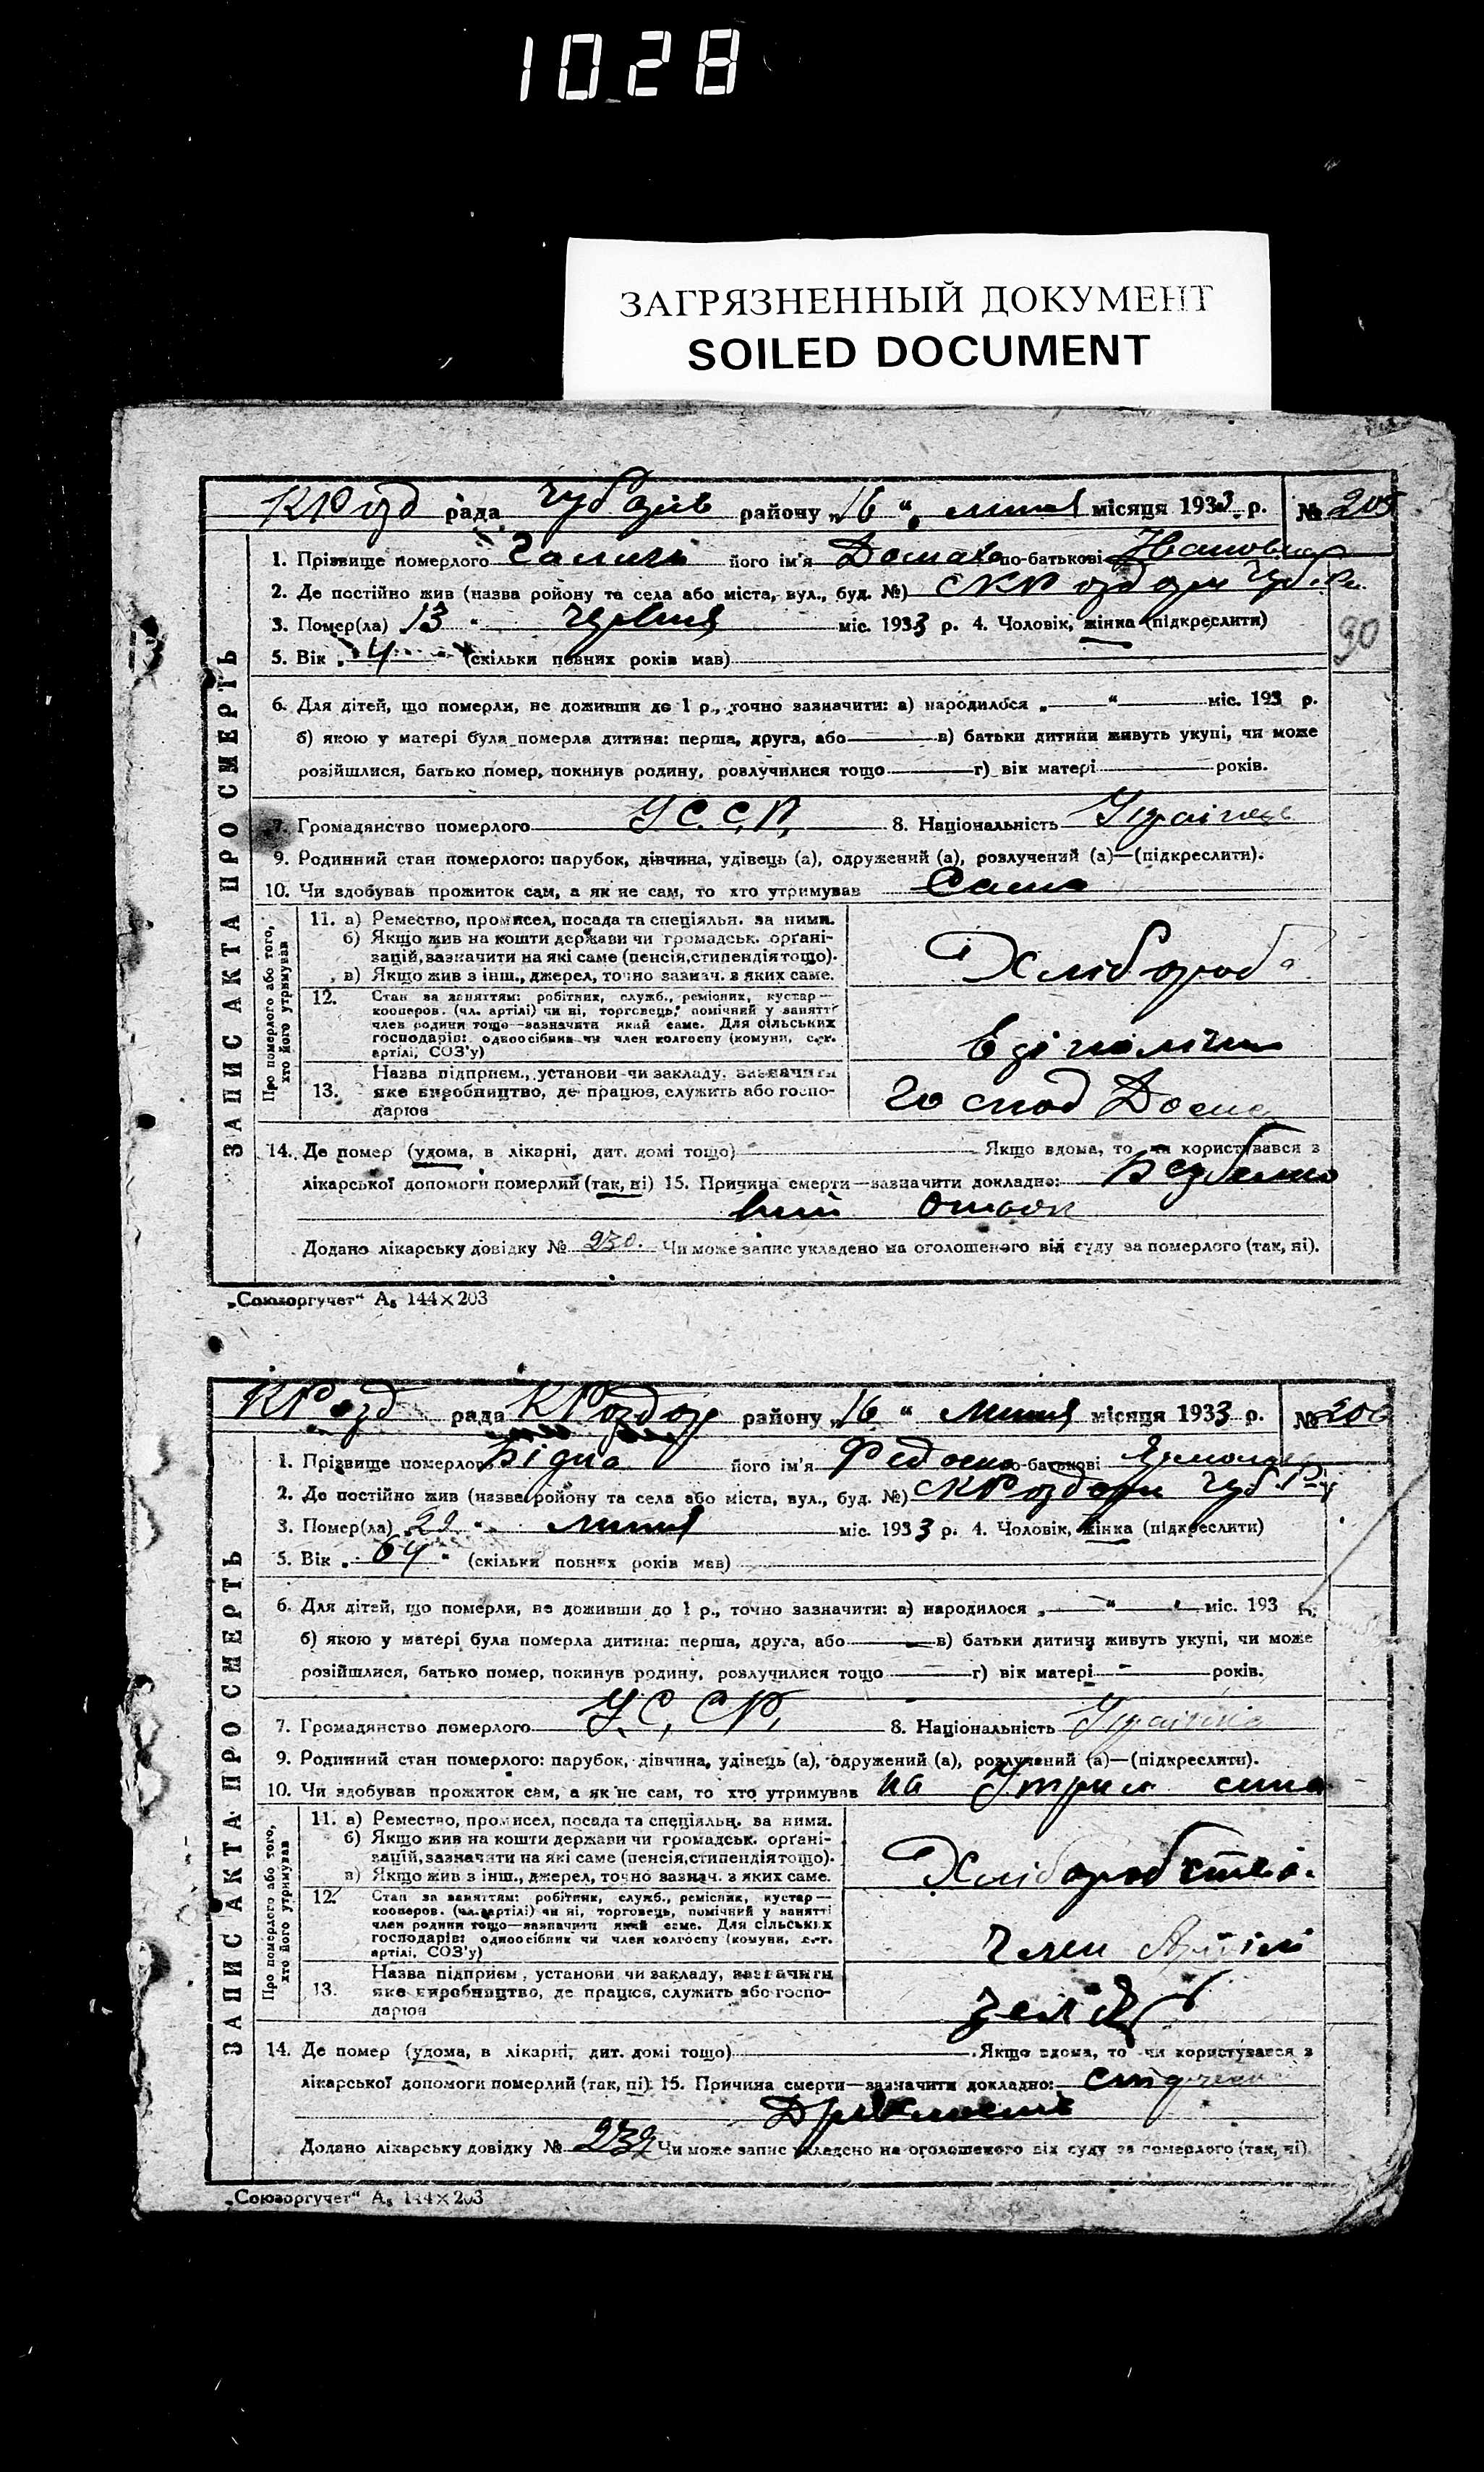 1028
ЗАГРЯЗНЕННЫЙ ДОКУМЕНТ
SOILED DOCUMENT
КРозд рада Чубарів району „16 “ липня місяця 1933 р. № 205
1. Прізвище померлого його ім'я Домаха по-батькові Івановна
2. Де постійно жив (назва ройону та села або міста, вул., буд. №) с КРоздори Чуб. Р
90
3. Помер(ла) 13 “ червня міс. 1933 р. 4. Чоловік, жінка (підкреслити)
5. Вік „ “ (скільки повних років мав)
ЗАПИС АКТА ПРО СМЕРТЬ
6. Для дітей, що померли, не доживши до 1 р., точно зазначити: а) народилося „ “ міс. 193 р.
б) якою у матері була померла дитина: перша, друга, або в) батьки дитини живуть укупі, чи може
розійшлися, батько помер, покинув родину, розлучилися тощо г) вік матері років.
7. Громадянство померлого У.С.С.Р. 8. Національність Українець
9. Родинний стан померлого: парубок, дівчина, удівець (а), одружений (а), розлучений (а)—(підкреслити).
10. Чи здобував прожиток сам, а як не сам, то хто утримував Сама
Про померлого або того, хто його утримував
11. а) Ремество, промисел, посада та спеціяльн. за ними.
б) Якщо жив на кошти держави чи громадськ. органі-
зацій, зазначити на які саме (пенсія, стипендія тощо).
в) Якщо жив з інш., джерел, точно зазнач. з яких саме.
Хлібороб
12. Стан за заняттям: робітник, служб., ремісник, кустар—
кооперов. (чл. артілі) чи ні, торговець, помічний у занятті
член родини тощо—зазначити який саме. Для сільських
господарів: одноосібник чи член колгоспу (комуни, с.-г.
артілі, СОЗ'у)
13. Назва підприєм., установи чи закладу, зазначити
яке виробництво, де працює, служить або госпо-
дарює
Господ Дома
14. Де помер (удома, в лікарні, дит. домі тощо) Якщо вдома, то чи користувався з
лікарської допомоги померлий (так, ні) 15. Причина смерти—зазначити докладно: Безбелко
вий Отьок
Додано лікарську довідку № 230. Чи може запис укладено на оголошеного від суду за померлого (так, ні).
„Союзоргучет“ А₅ 144×203
КРозд рада КРоздор району „16 “ липня місяця 1933 р. № 206
1. Прізвище померлого Бідна його ім'я Федосия по-батькові
2. Де постійно жив (назва ройону та села або міста, вул., буд. №) с КРоздори Чуб. Р-у
3. Помер(ла) 22 “ липня міс. 1933 р. 4. Чоловік, жінка (підкреслити)
5. Вік „ 64 “ (скільки повних років мав)
ЗАПИС АКТА ПРО СМЕРТЬ
6. Для дітей, що померли, не доживши до 1 р., точно зазначити: а) народилося „ “ міс. 193 р.
б) якою у матері була померла дитина: перша, друга, або в) батьки дитини живуть укупі, чи може
розійшлися, батько помер, покинув родину, розлучилися тощо г) вік матері років.
7. Громадянство померлого У.С.С.Р. 8. Національність Українка
9. Родинний стан померлого: парубок, дівчина, удівець (а), одружений (а), розлучений (а)—(підкреслити).
10. Чи здобував прожиток сам, а як не сам, то хто утримував на Утрим сина
Про померлого або того, хто його утримував
11. а) Ремество, промисел, посада та спеціяльн. за ними.
б) Якщо жив на кошти держави чи громадськ. органі-
зацій, зазначити на які саме (пенсія, стипендія тощо).
в) Якщо жив з інш., джерел, точно зазнач. з яких саме.
Хліборобство.
12. Стан за заняттям: робітник, служб., ремісник, кустар—
кооперов. (чл. артілі) чи ні, торговець, помічний у занятті
член родини тощо—зазначити який саме. Для сільських
господарів: одноосібник чи член колгоспу (комуни, с.-г.
артілі, СОЗ'у)
Член Артілі
13. Назва підприєм., установи чи закладу, зазначити
яке виробництво, де працює, служить або госпо-
дарює
14. Де помер (удома, в лікарні, дит. домі тощо) Якщо вдома, то чи користувався з
лікарської допомоги померлий (так, ні). 15. Причина смерти—зазначити докладно:
Дряхлость
Додано лікарську довідку № 232 Чи може запис укладено на оголошеного від суду за померлого (так, ні).
„Союзоргучет“ А₅ 144×203